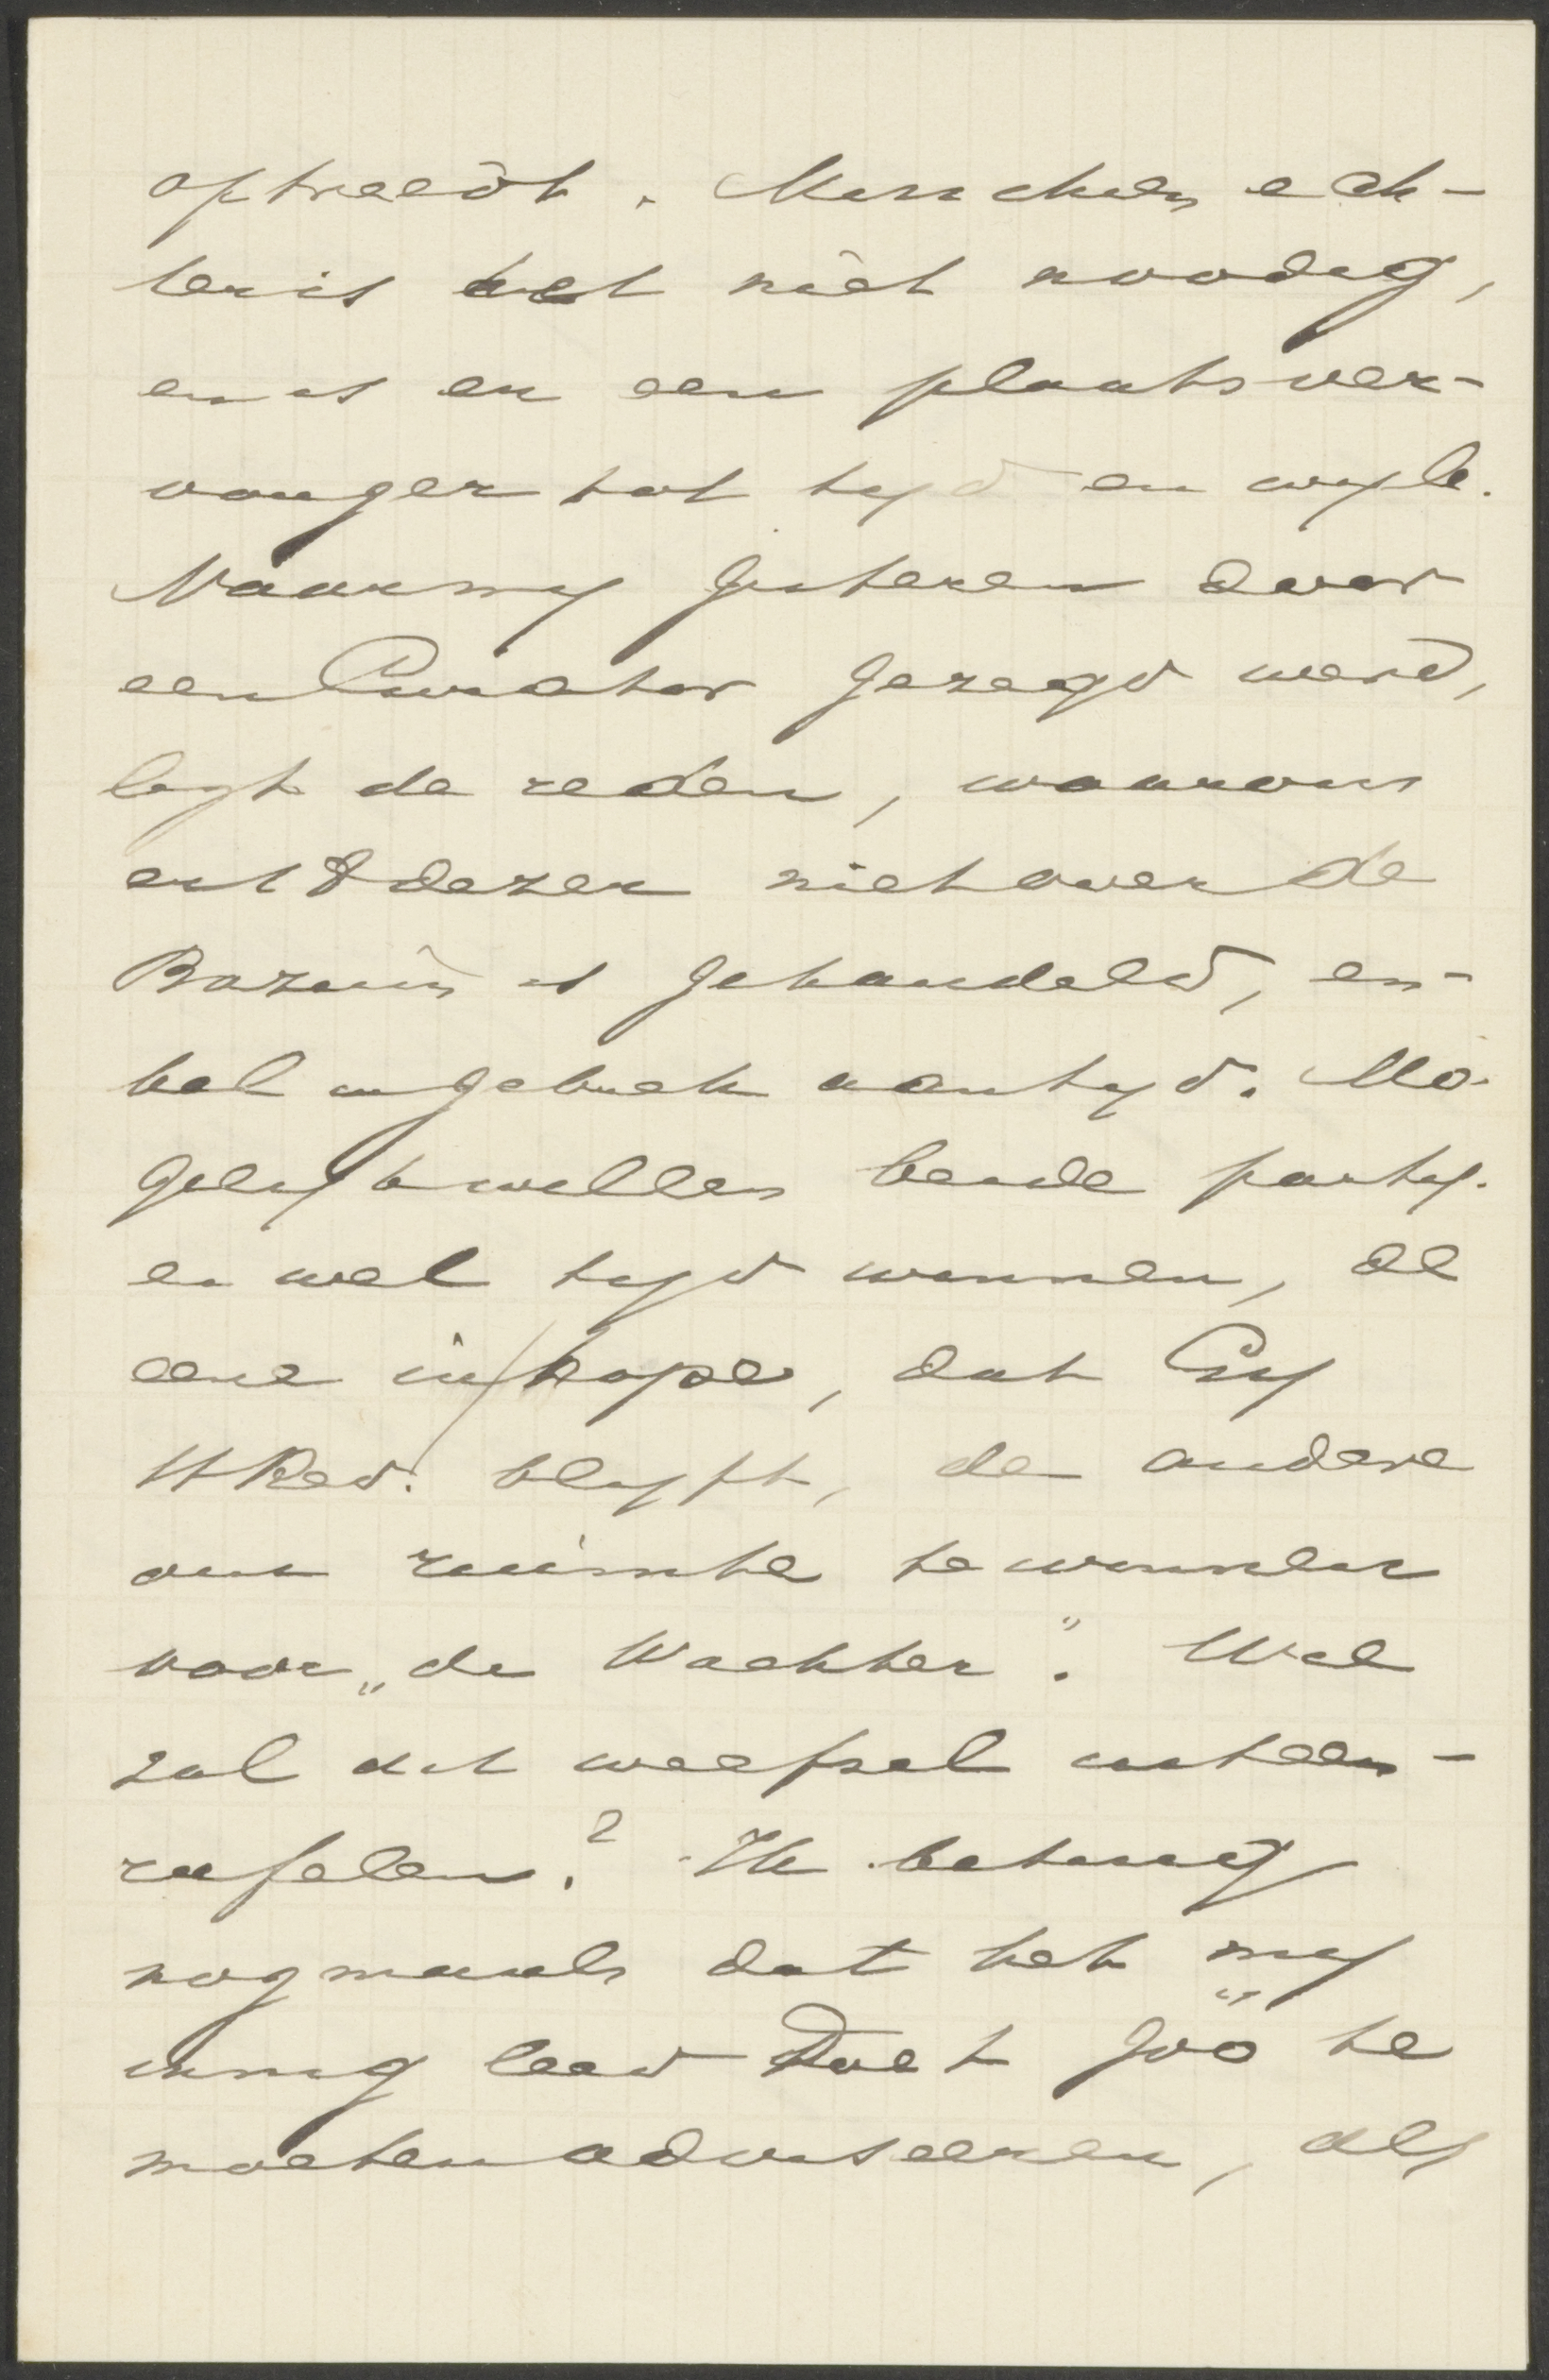 optreedt. Misschien ech-
ter is het niet noodig,
en is er een plaatsver-
vanger tot tijd en wijle.
Naar mij gisteren door
een Curator gezegd werd,
ligt de reden, waarom
tot dezer niet over de
Bazuin is gehandeld, en-
kel in gebrek aan tijd. Mo-
gelijk willen beide partij-
en wel tijd winnen, de
eene in hope, dat Gij
H Red. blijft, de andere
om ruimte te winnen
voor „de Wachter". Wie
zal dit weefsel uiteen-
rafelen? Ik betuig
nogmaals dat het mij
innig leed doet zóó te
moeten adviseeren, als